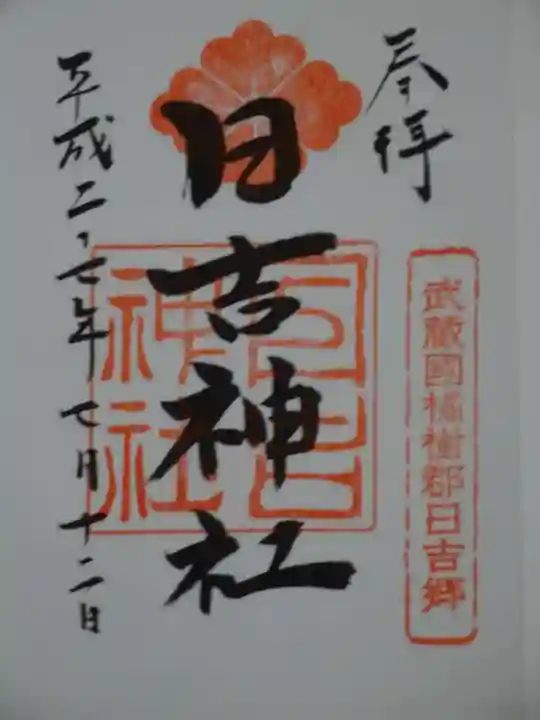 奉拝
武蔵國橘樹郡日吉郷
日吉神社
日吉神社
平成二十七年七月十二日